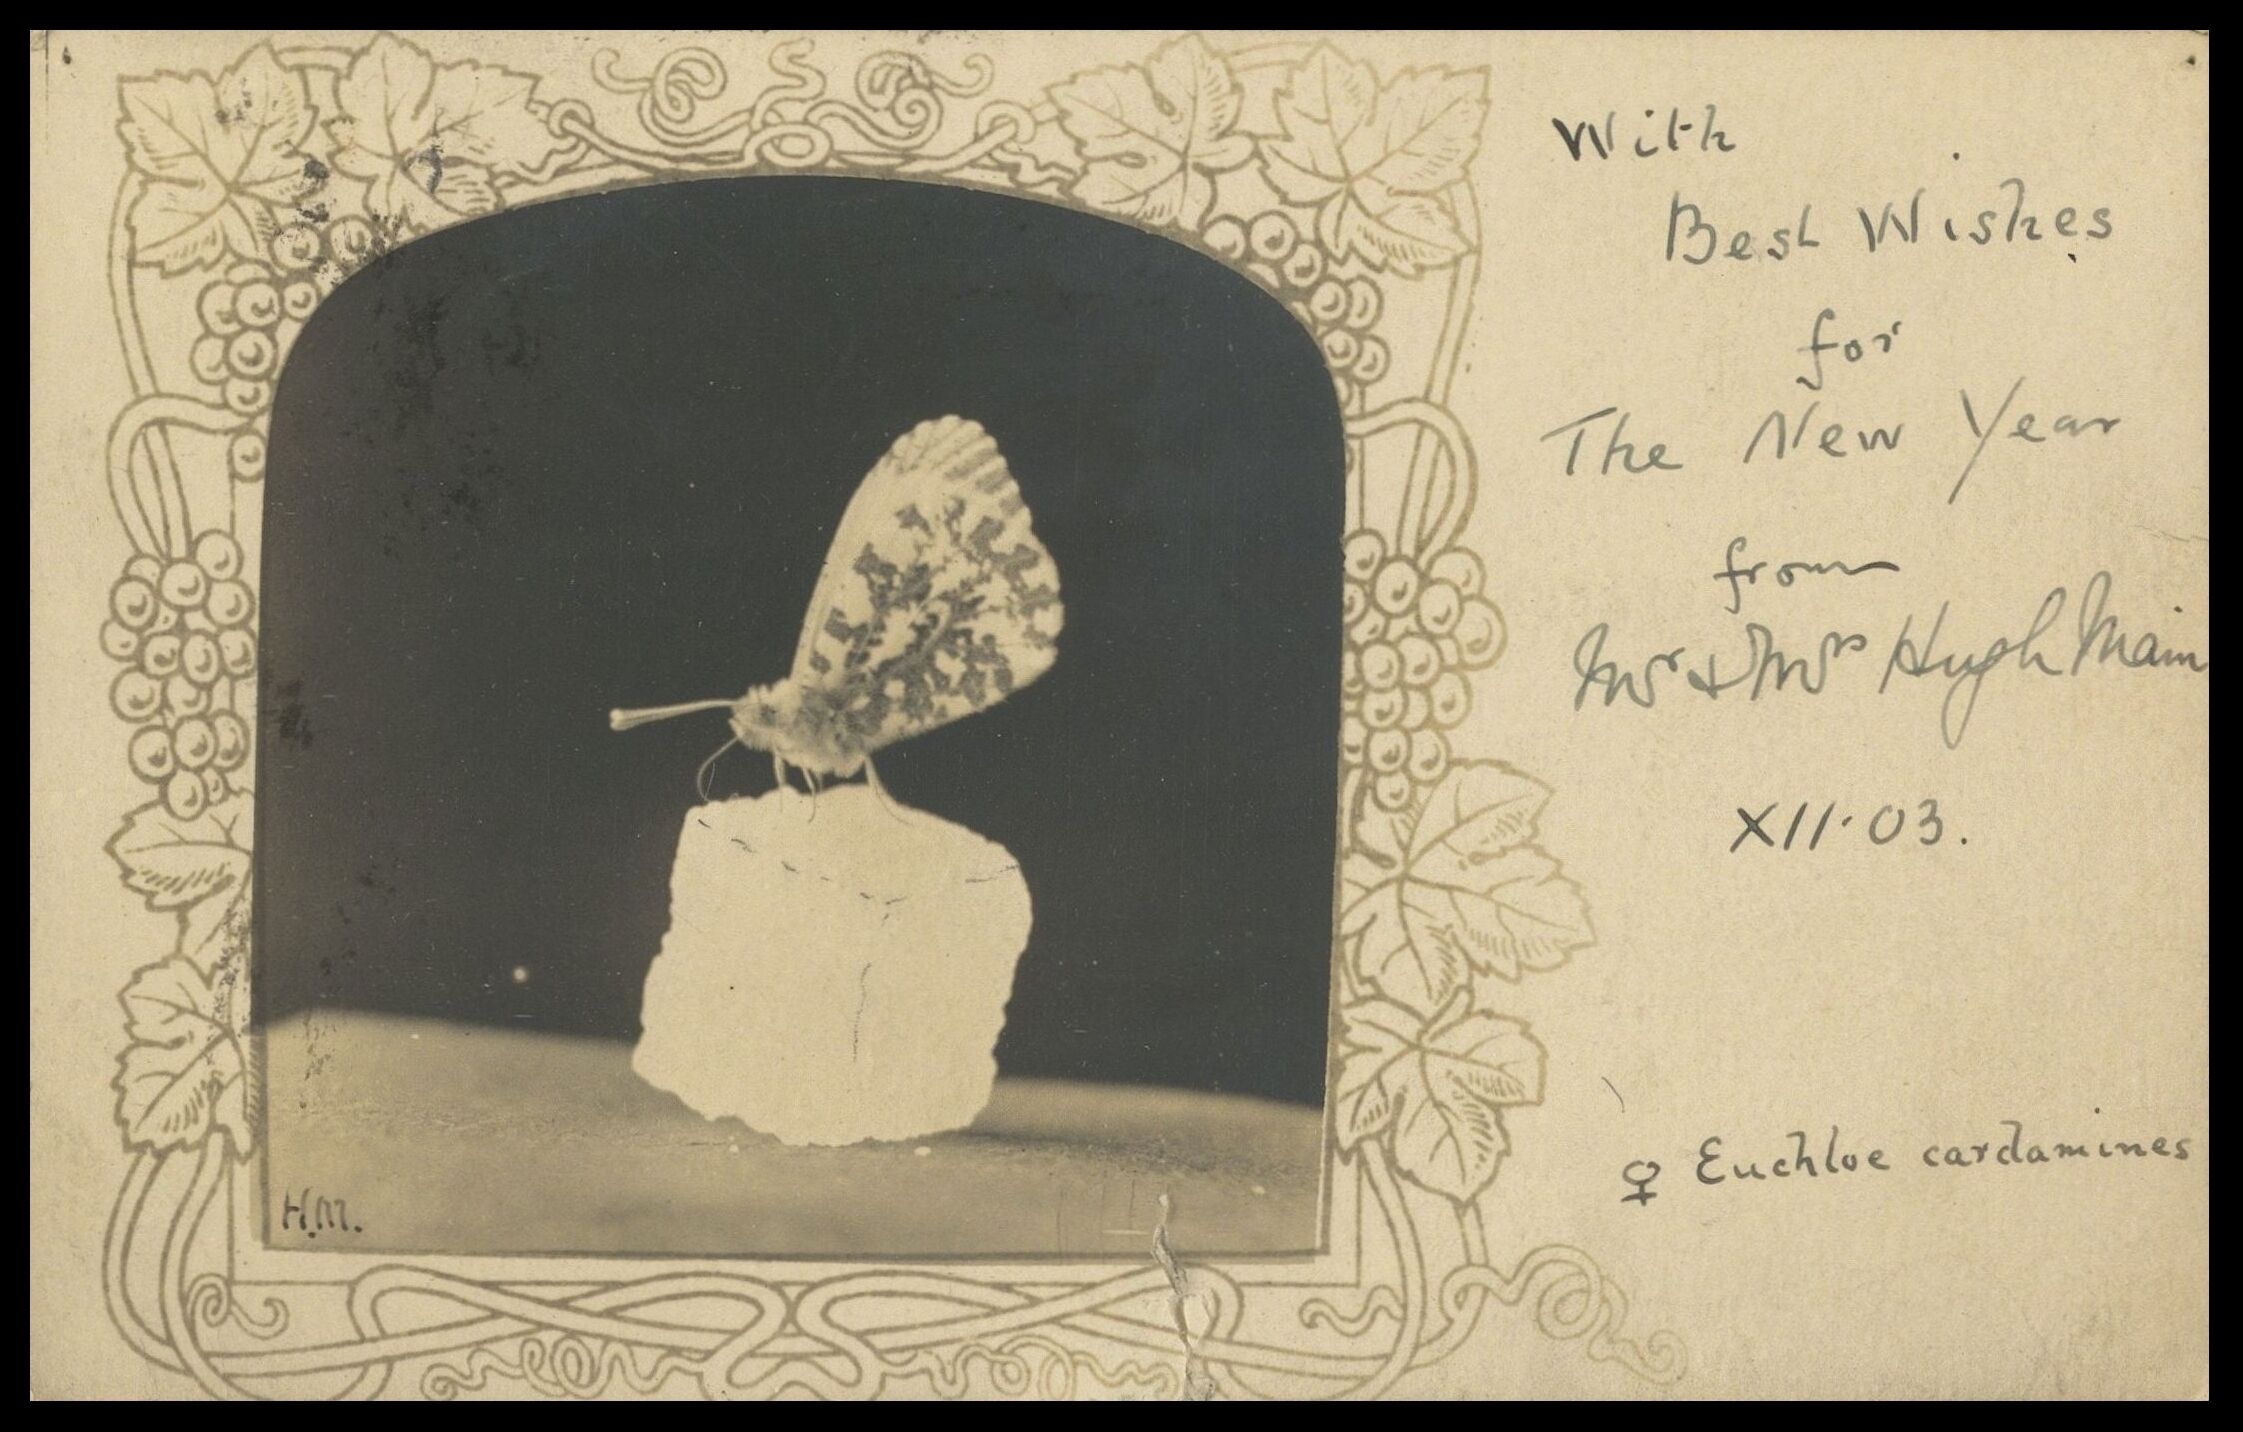 With
Best Wishes
for
The New Year
from
Mr & Mrs Hugh Main
XII·03.
♀ Euchloe cardamines
H.M.